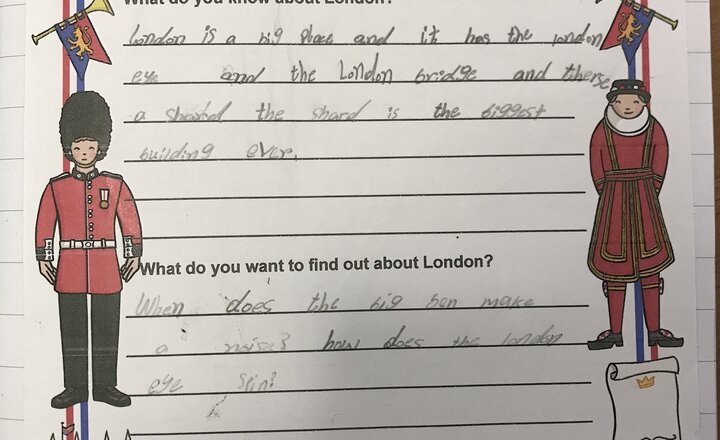 What do you know about London?
London is a big place and it has the london
eye and the London bridge and therse
a shared the shard is the biggest
building ever.
What do you want to find out about London?
When does the big ben make
a noise? how does the london
eye spin?